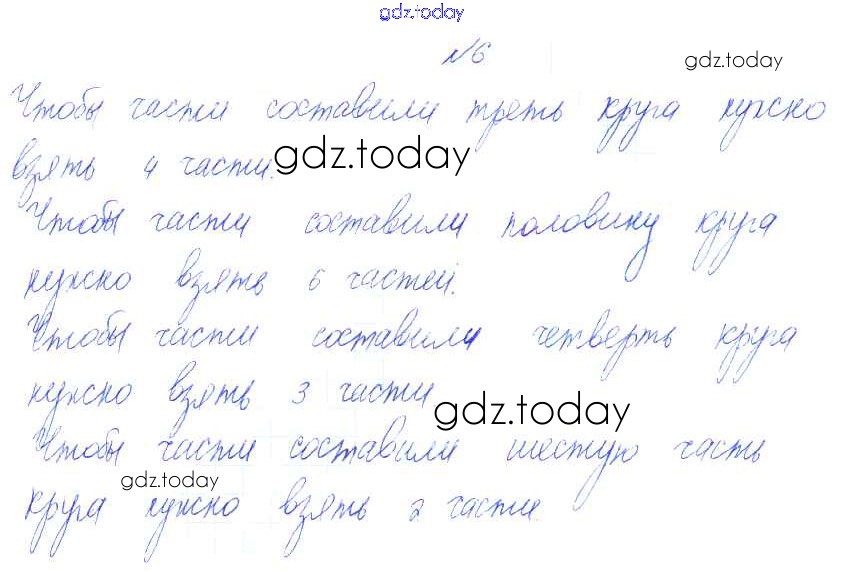 gdz.today
№6
gdz.today
Чтобы части составили треть круга нужно
взять 4 части.
gdz.today
Чтобы части составили половину круга
нужно взять 6 частей.
Чтобы части составили четверть круга
нужно взять 3 части
gdz.today
Чтобы части составили шестую часть
gdz.today
круга нужно взять 2 части.